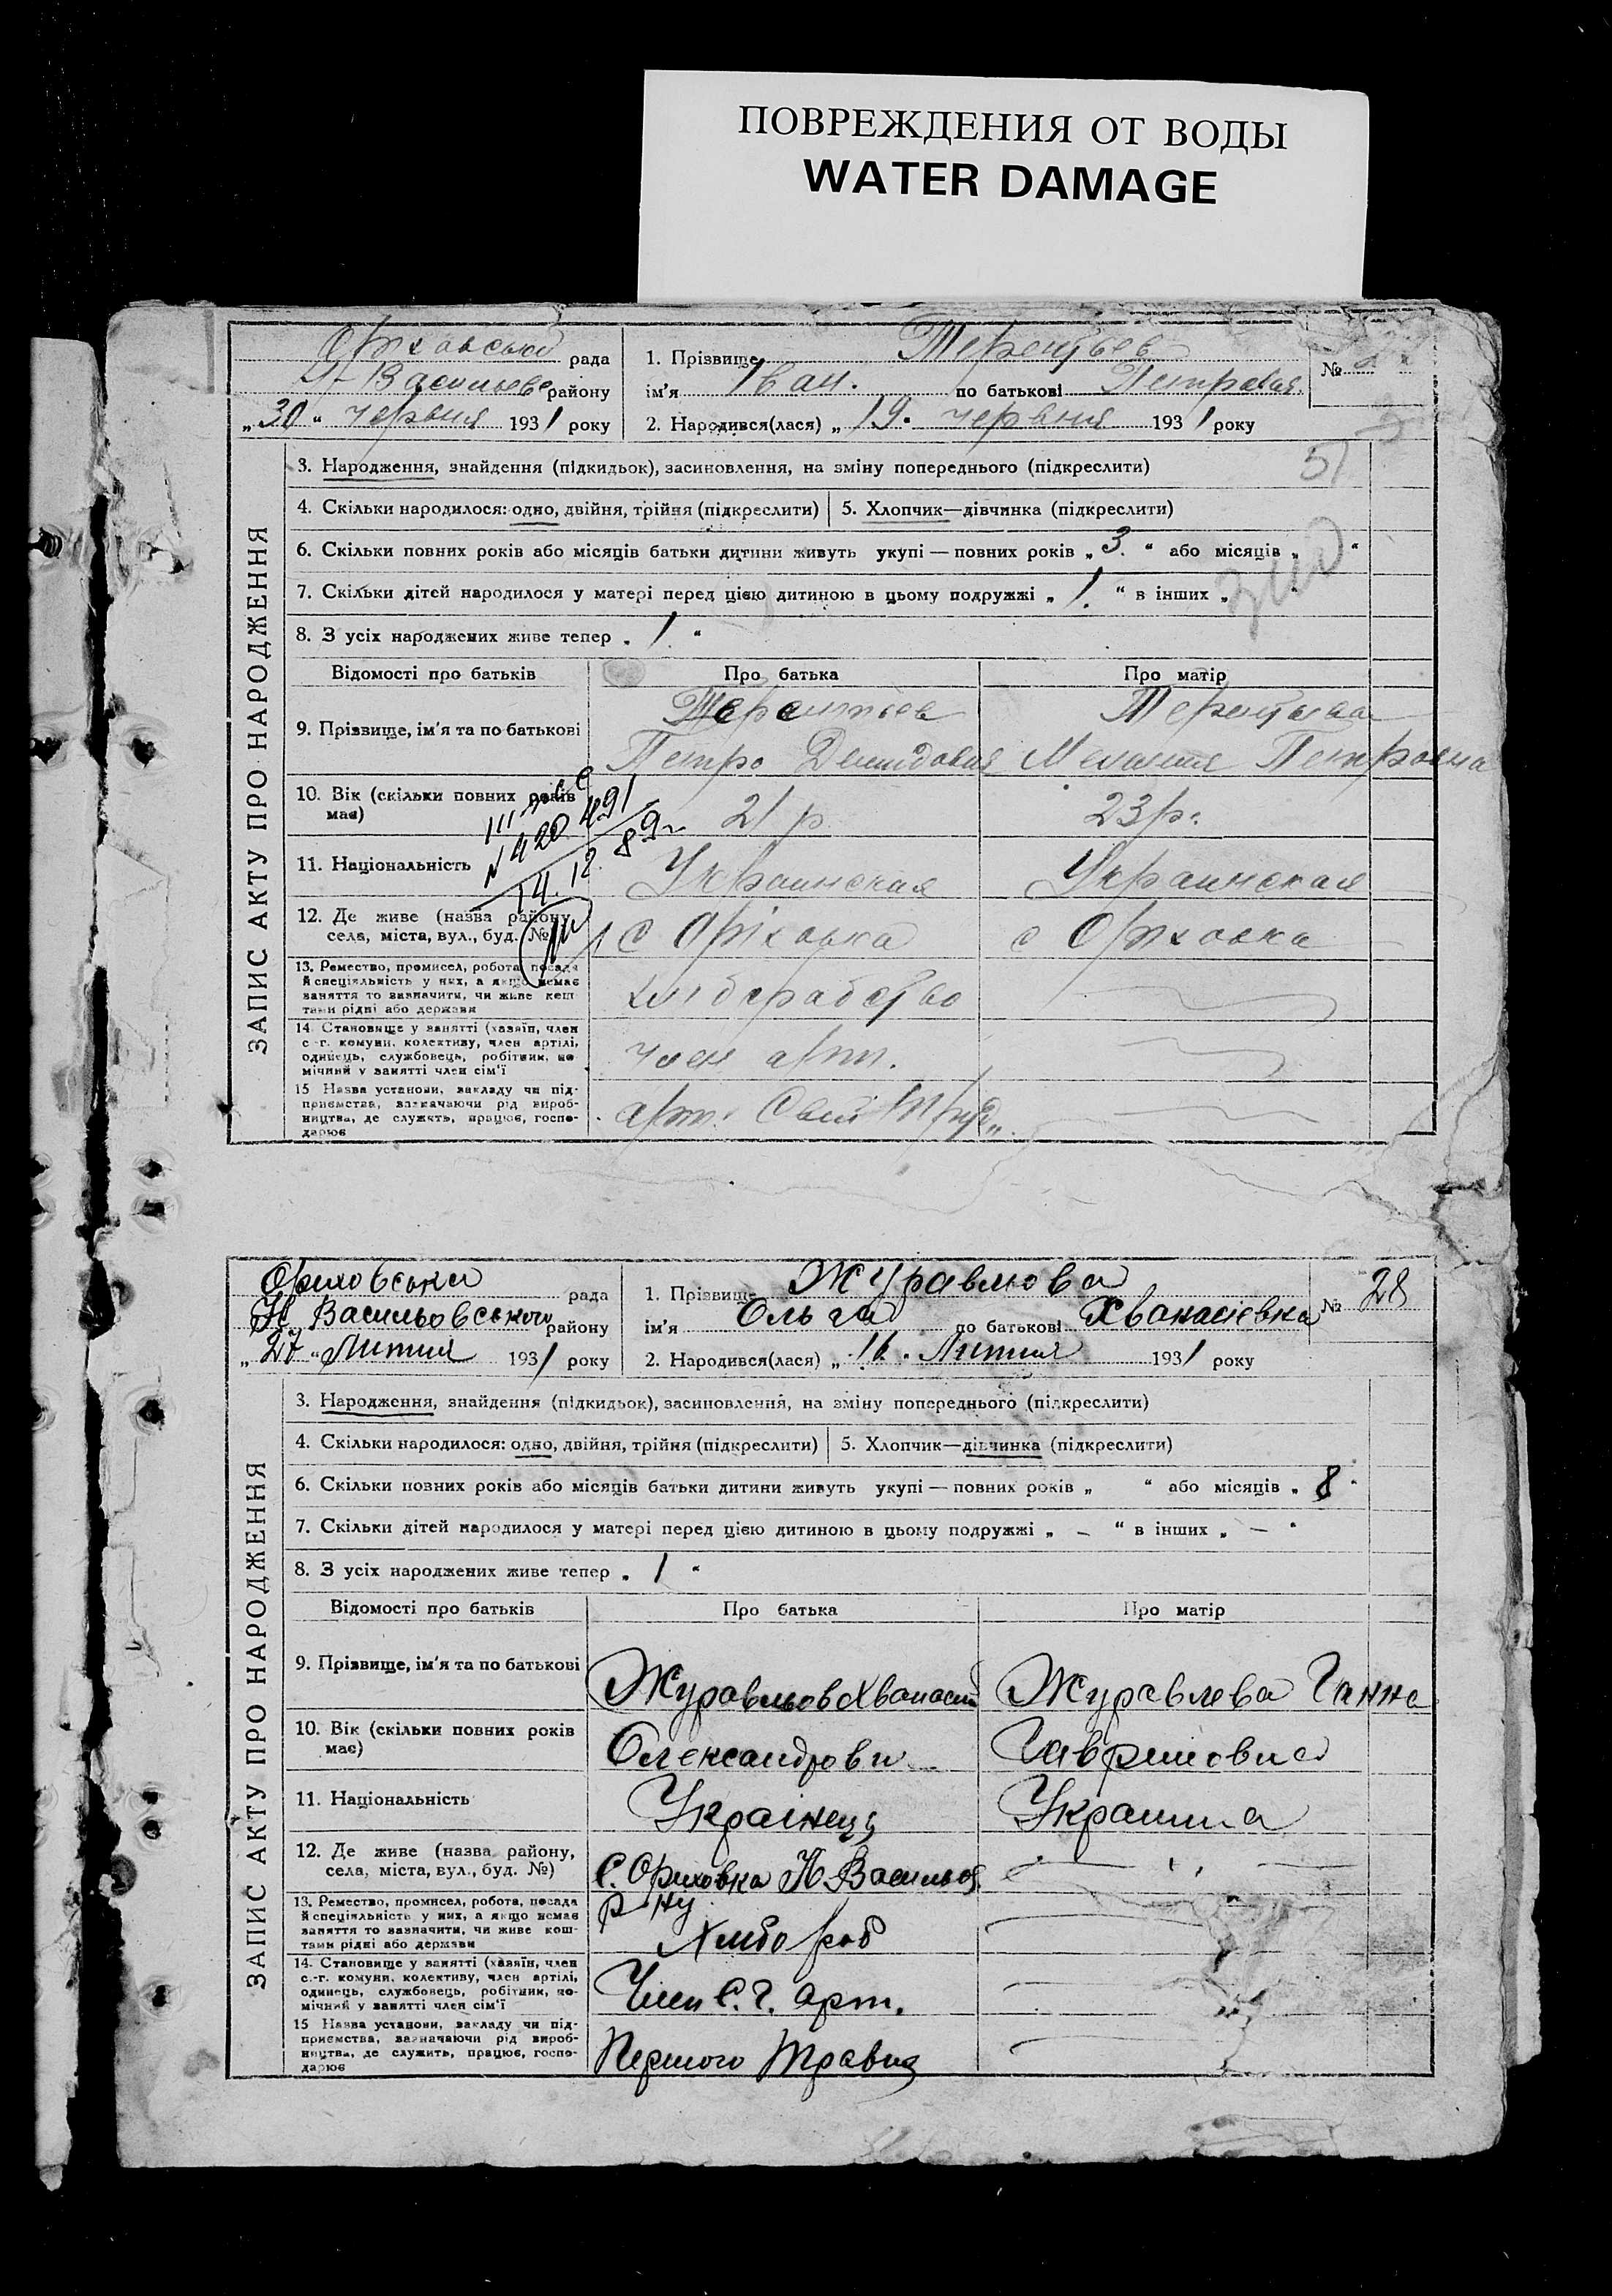 ПОВРЕЖДЕНИЯ ОТ ВОДЫ
WATER DAMAGE
рада
району
„30“ червня 1931 року
1. Прізвище Терентьев
ім'я Іван. по батькові
№
2. Народився(лася) „19“ червня 1931 року
ЗАПИС АКТУ ПРО НАРОДЖЕННЯ
3. Народження, знайдення (підкидьок), засиновлення, на зміну попереднього (підкреслити)
51
4. Скільки народилося: одно, двійня, трійня (підкреслити) 5. Хлопчик—дівчинка (підкреслити)
6. Скільки повних років або місяців батьки дитини живуть укупі — повних років „3“ або місяців „ “
7. Скільки дітей народилося у матері перед цією дитиною в цьому подружжі „1.“ в інших „ “
8. З усіх народжених живе тепер „1“
Відомості про батьків Про батька Про матір
9. Прізвище, ім'я та по батькові Терентьев
Петро Петровна
10. Вік (скільки повних років має) 21 р. 23 р.
11. Національність Украинская Украинская
14.12.89г
12. Де живе (назва району, села, міста, вул., буд. №) с Оріховка с Оріховка
13. Ремество, промисел, робота, посада
й спеціяльність у них, а якщо немає
заняття то зазначити, чи живе кош-
тами рідні або держави
14. Становище у занятті (хазяїн, член
с.-г. комуни, колективу, член артілі,
одинець, службовець, робітник, по-
мічний у занятті член сім'ї
член арт.
15 Назва установи, закладу чи під-
приємства, зазначаючи рід вироб-
ництва, де служить, працює, госпо-
дарює
арт. Свій Труд„
Ориховська рада
Н Васильовського району
„27“ Липня 1931 року
1. Прізвище Журавльова
ім'я Ольга по батькові Хванасіевна
№ 28
2. Народився(лася) „16“ Липня 1931 року
ЗАПИС АКТУ ПРО НАРОДЖЕННЯ
3. Народження, знайдення (підкидьок), засиновлення, на зміну попереднього (підкреслити)
4. Скільки народилося: одно, двійня, трійня (підкреслити) 5. Хлопчик—дівчинка (підкреслити)
6. Скільки повних років або місяців батьки дитини живуть укупі — повних років „ “ або місяців „8“
7. Скільки дітей народилося у матері перед цією дитиною в цьому подружжі „ – “ в інших „ – “
8. З усіх народжених живе тепер „1“
Відомості про батьків Про батька Про матір
9. Прізвище, ім'я та по батькові
Журавльов Хванасий Журавлева Ганна
10. Вік (скільки повних років
має)
Олександрови Гавриловна
11. Національність Українець Украинка
12. Де живе (назва району,
села, міста, вул., буд. №)
С. Ориховка Н Васильов
р-ну
13. Ремество, промисел, робота, посада
й спеціяльність у них, а якщо немає
заняття то зазначити, чи живе кош-
тами рідні або держави
Хлібороб
14. Становище у занятті (хазяїн, член
с.-г. комуни, колективу, член артілі,
одинець, службовець, робітник, по-
мічний у занятті член сім'ї
Член С. Г. арт.
15 Назва установи, закладу чи під-
приємства, зазначаючи рід вироб-
ництва, де служить, працює, госпо-
дарює
Першого Травня